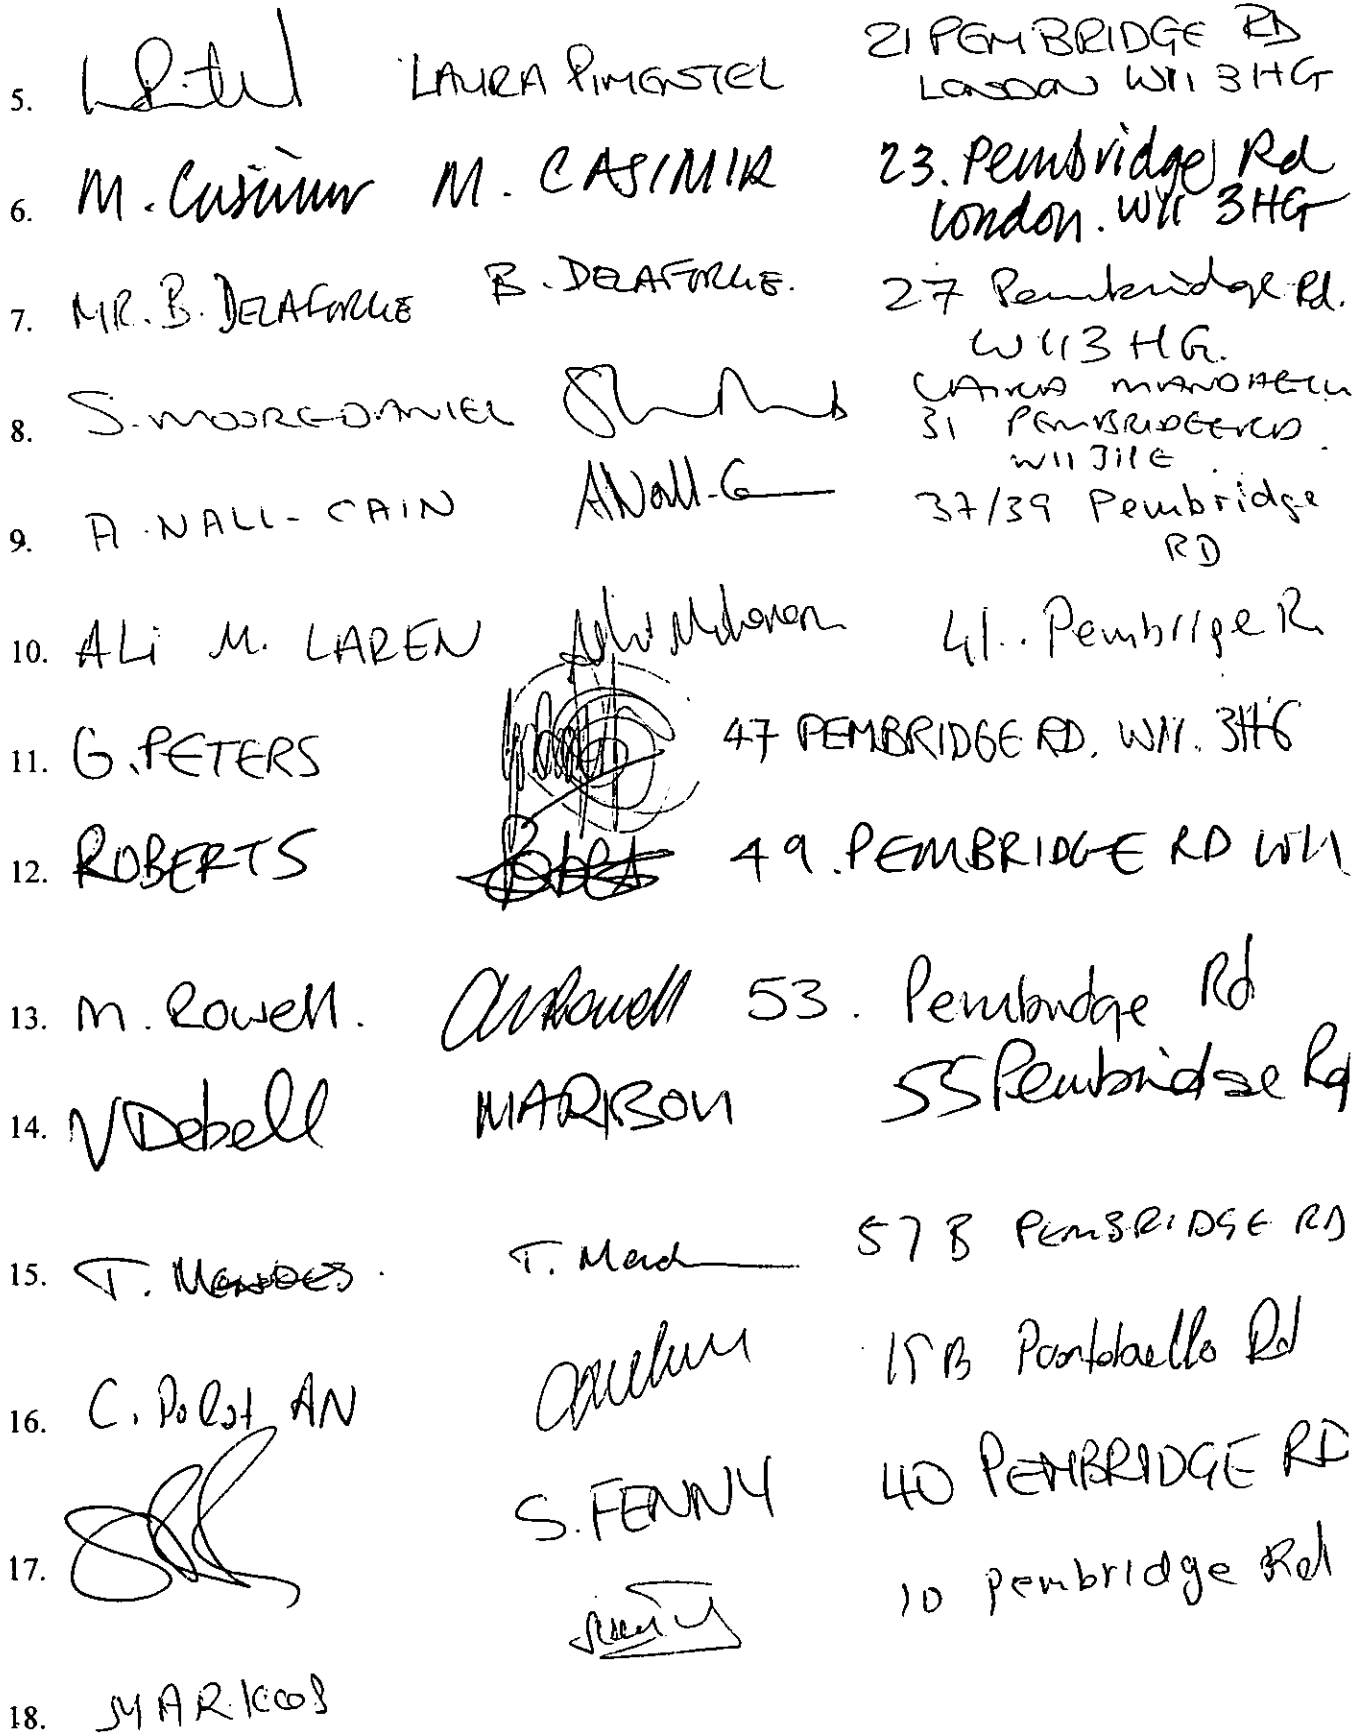 5. LAURA PIMENTEL 21 PEMBRIDGE RD
LONDON W11 3HG
6. M. Casimir M. CASIMIR 23. Pembridge Rd
London. W11 3HG
7. MR. B. DELAFORCE B. DELAFORCE. 27 Pembridge Rd.
W11 3HG.
8. S. MOORE-DANIEL
31 PEMBRIDGE RD.
W11
9. A. NALL-CAIN ANall-C 37/39 Pembridge
RD
10. ALi M. LAREN 41.. Pembrige R
11. G. PETERS 47 PEMBRIDGE RD. W11. 3HG
12. ROBERTS 49. PEMBRIDGE RD W11
13. M. Rowell. 53. Pembridge Rd
14. V Debell MARIBOU 55 Pembridge Rd
15. T. MENDES. T. Mend 57 B PEMBRIDGE RD
16. C. Polst AN 15 B Portobello Rd
17. S. FENNY 40 PEMBRIDGE RD
10 pembridge Rd
18. MARKCOS